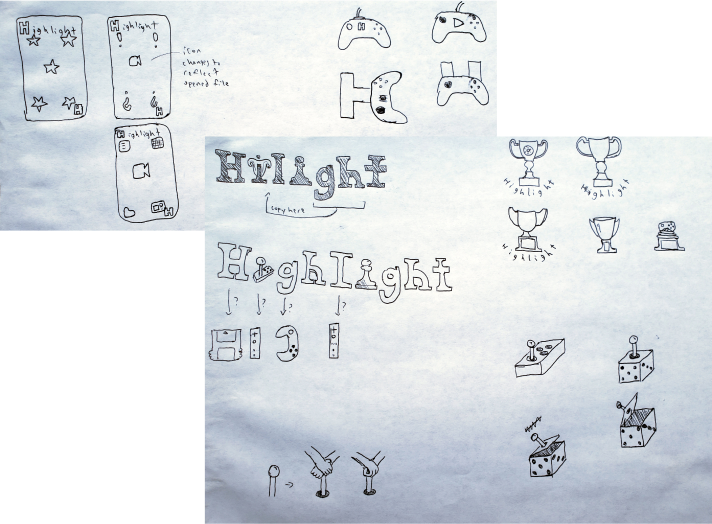 Highlight
H
Highlight
H
icon
changes to
reflect
opened file
Highlight
H
H
Hilight
copy here
HighIight
? ? ? ?
Highlight
Highlight
Highlight